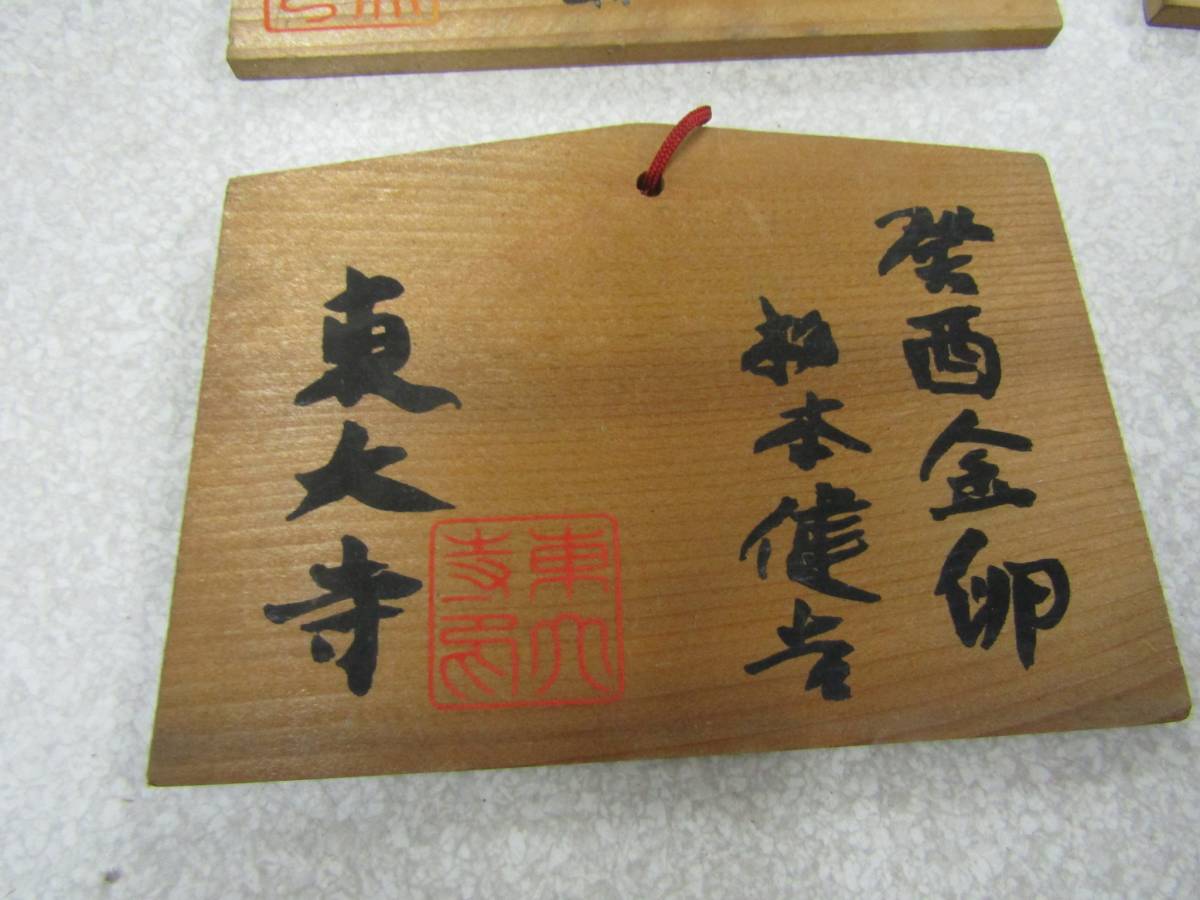 癸酉金卵
松本健吉
東大寺
東大
寺印